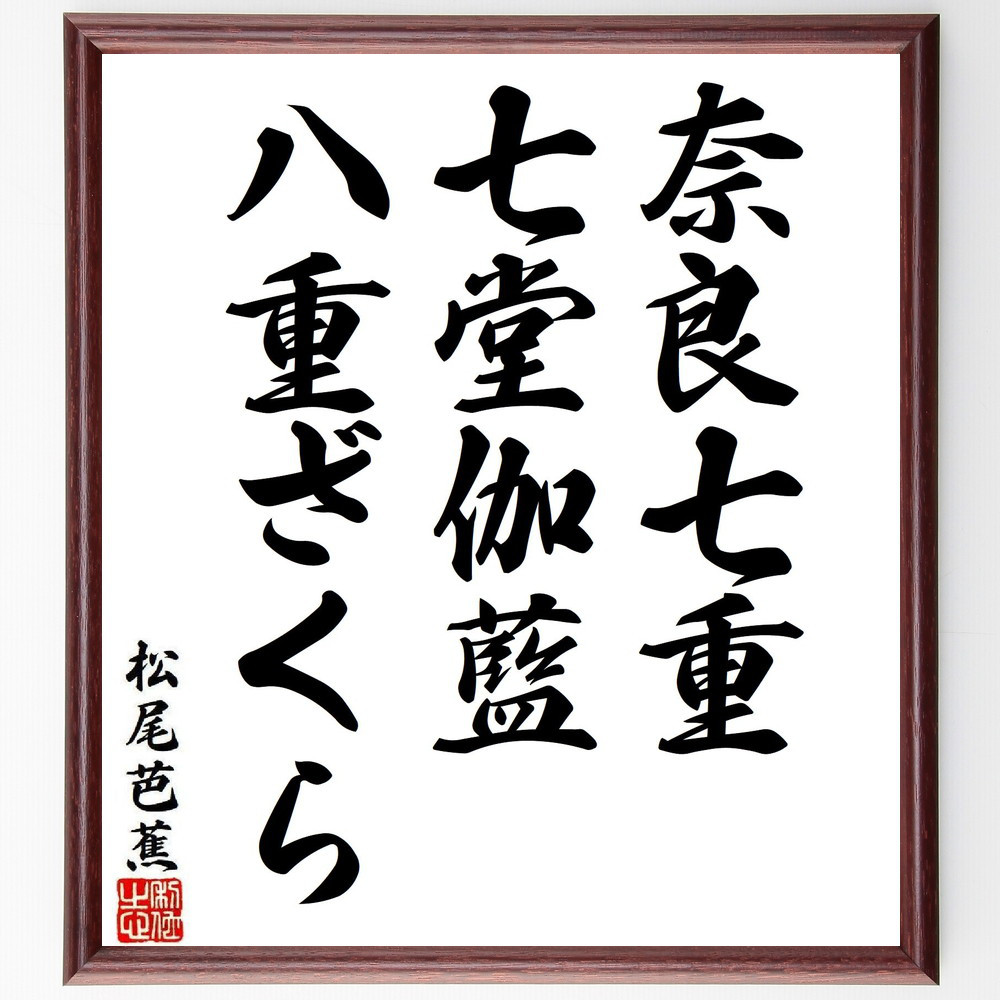 奈良七重
七堂伽藍
八重ざくら
松尾芭蕉